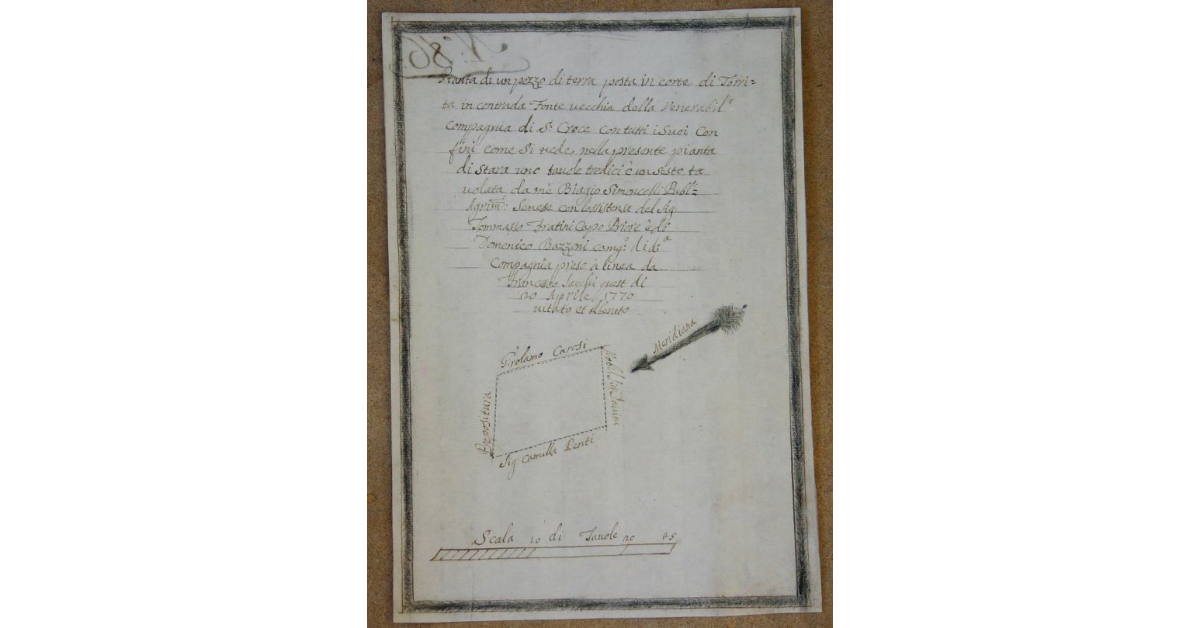 N: 86
Pianta di un pezzo di terra posta in corte di Torri=
ta in contrada Fonte vecchia della Venerabil
Compagnia di S. Croce con tutti i suoi Con
fini come si vede, nella presente pianta
di stara uno tavole tredici è un sesto ta
volata da me Biagio Simoncelli Publ:
Agrim: Senese con l'assistensa del Sig
Tommasso Fratini Capo Priore è di
Domenico Bazzoni camg: di d:a
Compagnia preso à linea da
Francesco quest di
20 Aprile, 1770
Meridiana
Girolamo Carosi
Nobil Sig
Prepositura
Sig Camilla Penti
Scala 10 di Tavole 20 25